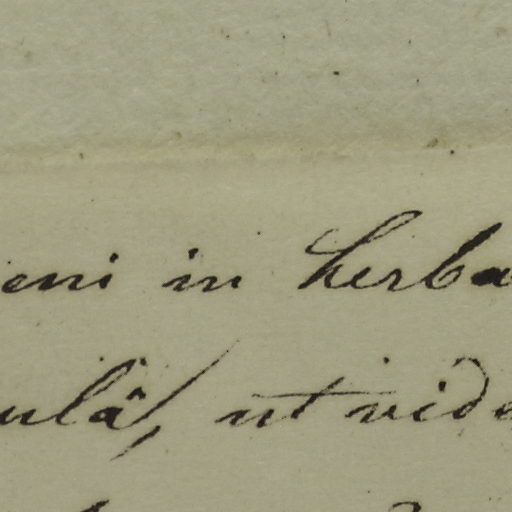 eni in herba
ulâ, ut vide